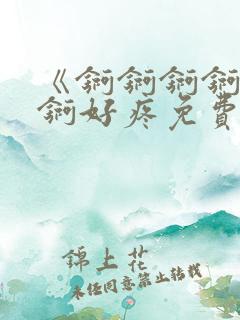 《锕锕锕锕
锕好疼免費
錦上花
未经同意禁止转载